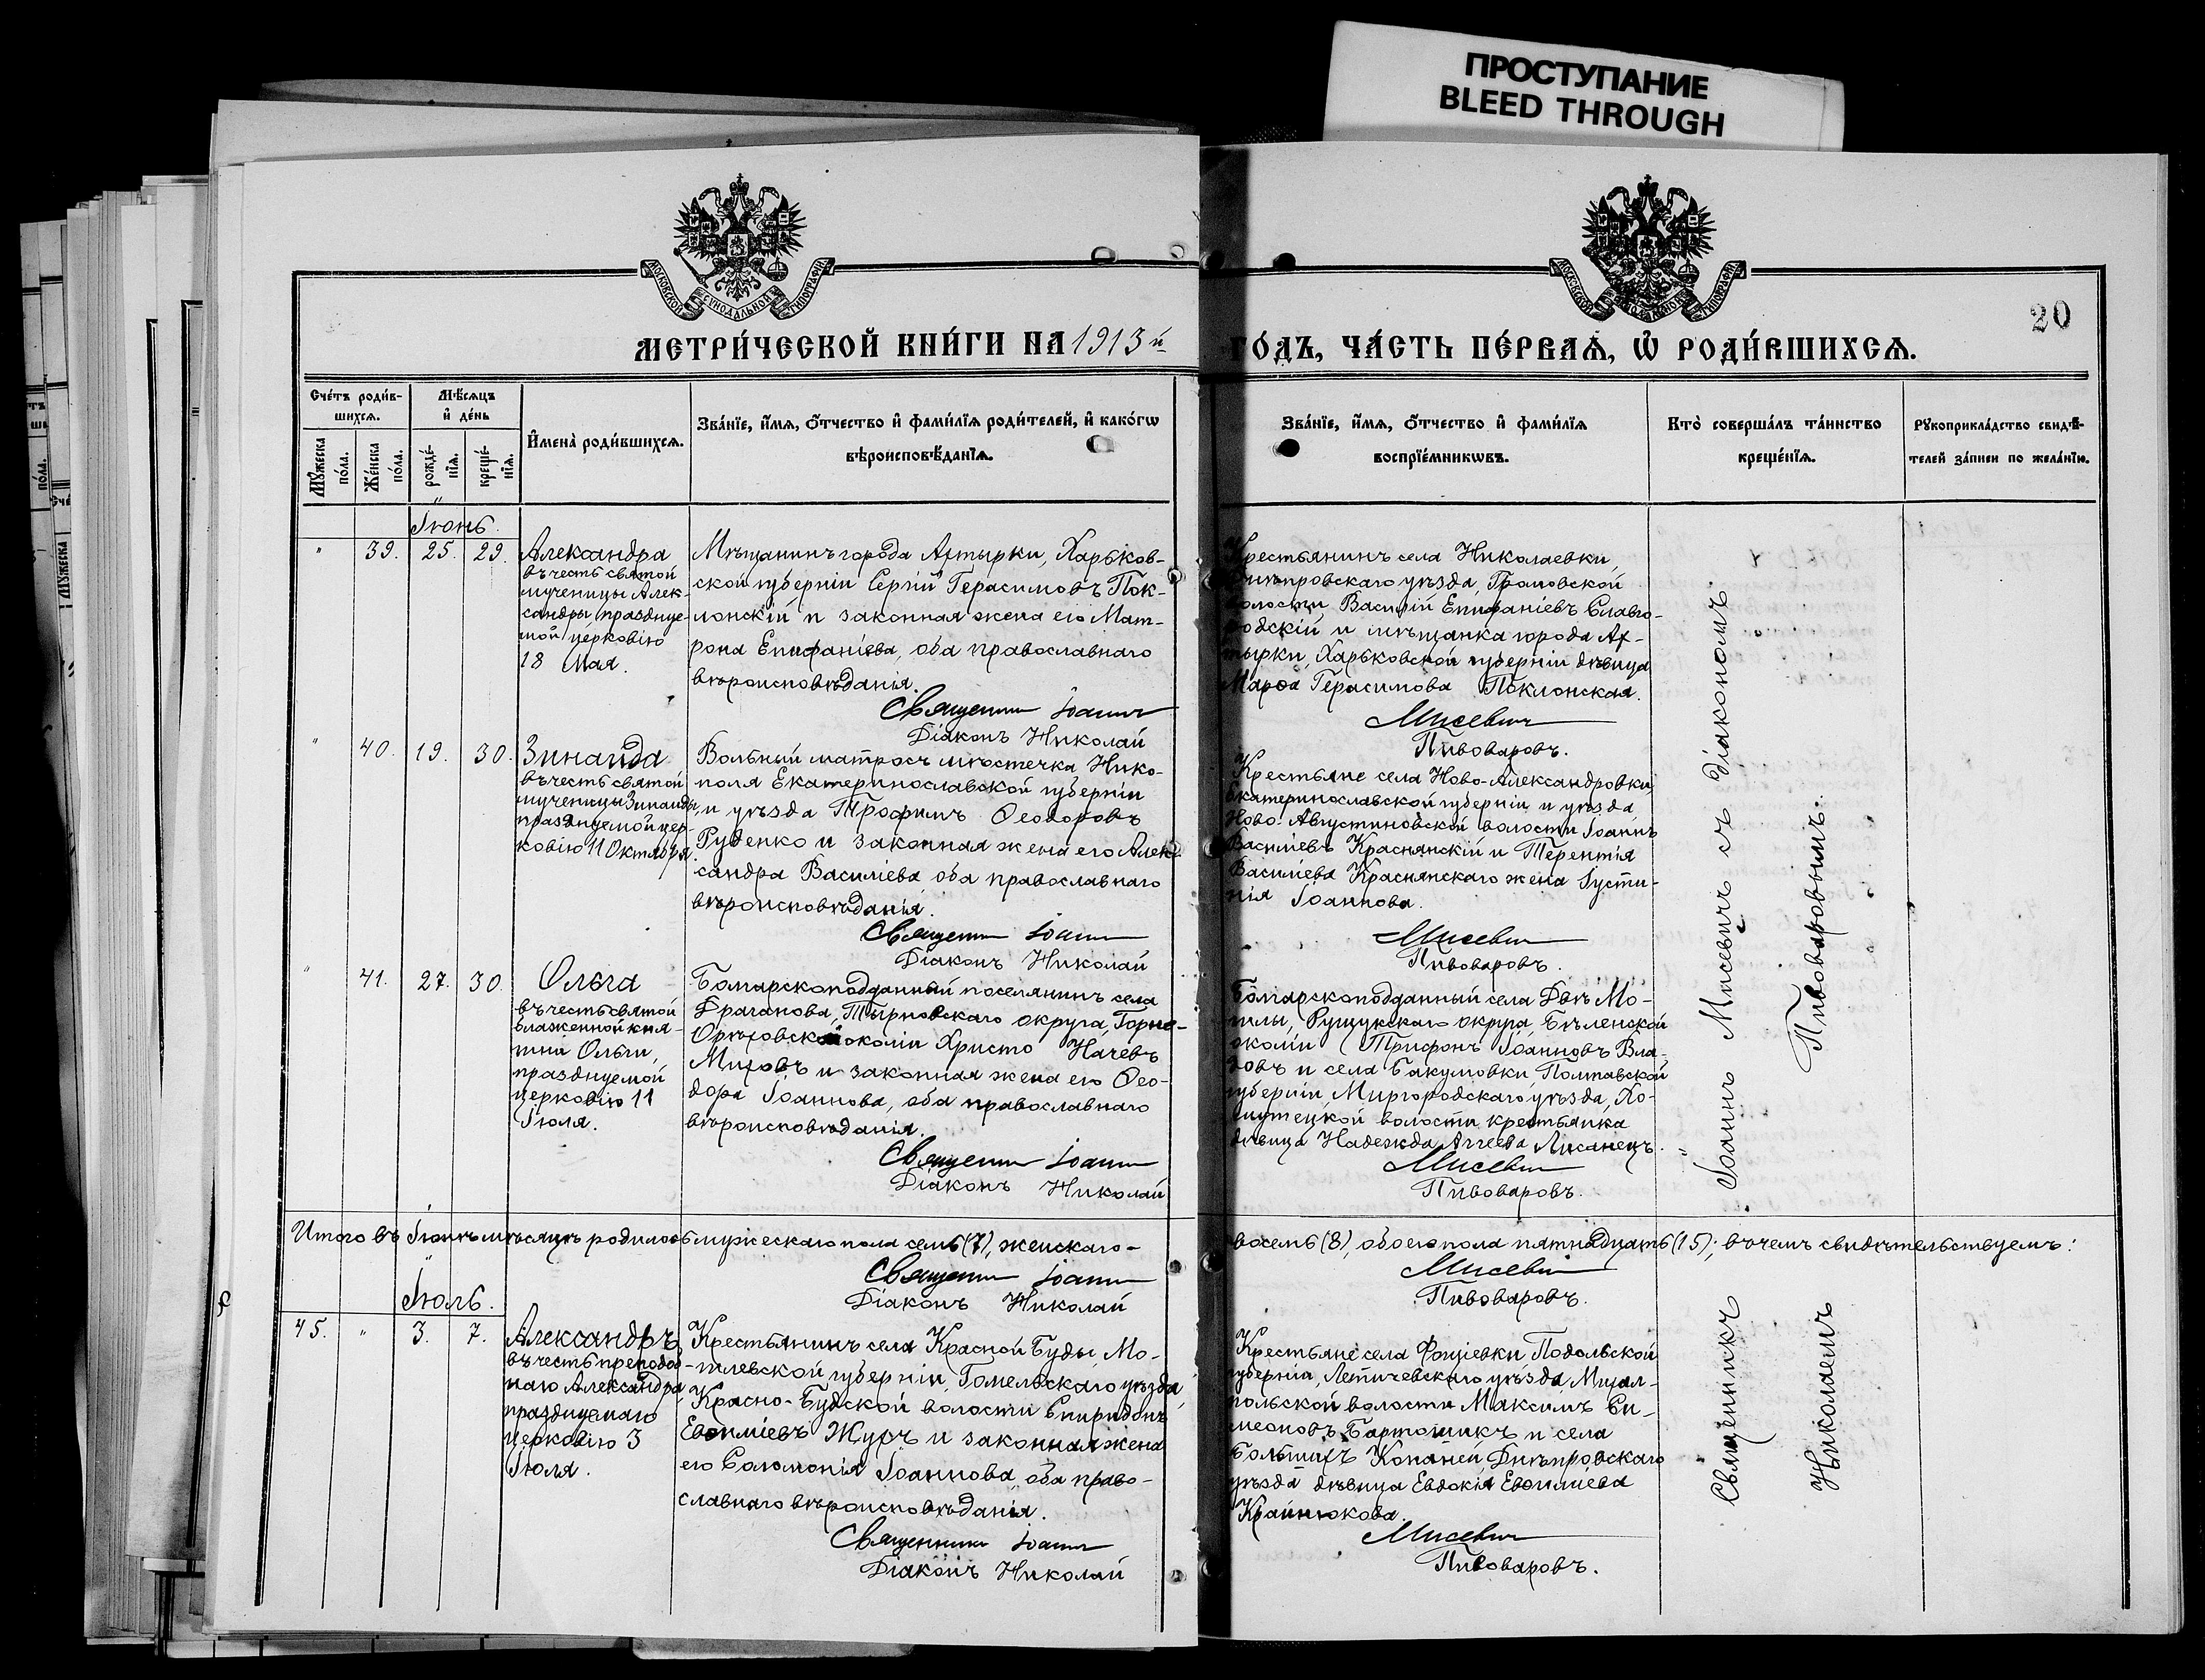 ПРОСТУПАНИЕ
BLEED THROUGH
МОСКОВСКОЙ СѴНОДАЛЬНОЙ ТИПОГРАФІИ
МОСКОВСКОЙ СѴНОДАЛЬНОЙ ТИПОГРАФІИ
20
МЕТРИ́ЧЕСКОЙ КНИ́ГИ НА 1913 й
ГО́ДЪ, ЧА́СТЬ ПЕ́РВАѦ, Ѡ҆ РОДИ́ВШИХСѦ.
Сче́тъ роди́в-
шихсѧ.
Мꙋ́жеска
по́ла.
Же́нска
по́ла.
Мѣ́сѧцъ
и҆ де́нь
рожде́-
нїѧ.
креще́-
нїѧ.
И҆мена̀ роди́вшихсѧ.
Зва́нїе, и҆́мѧ, ѻ҆́тчество и҆ фами́лїѧ роди́телей, и҆ како́гѡ
вѣроисповѣ́данїѧ.
Зва́нїе, и҆́мѧ, ѻ҆́тчество и҆ фами́лїѧ
воспрїе́мникѡвъ.
Кто̀ соверша́лъ та́инство
креще́нїѧ.
Рꙋкоприкла́дство свидѣ́-
телей за́писи по жела́нїю.
Іюнь.
" 39. 25. 29.
Александра
въ честь святой
мученицы Алек-
сандры, праздлуе-
мой церковію
18 Мая.
Мѣщанинъ города Ахтырки, Харьков-
ской губерніи Сергій Герасимовъ Пок-
лонскій и законная жена его Мат-
рона Епифаніева, оба православнаго
вѣроисповѣданія.
Священникъ Іоаннъ
Діаконъ Николай
Крестьянинъ села Николаевки,
Днѣпровскаго уѣзда, Громовской
волости, Василій Епифаніевъ Славго-
родскій и мѣщанка города Ах-
тырки, Харьковской губерніи дѣвица
Марѳа Герасимова Поклонская.
Мисевичъ
Пивоваровъ.
" 40. 19. 30.
Зинаида
въ честь святой
мученицы Зинаиды,
празднуемой цер-
ковію 11 Октября.
Вольный матросъ мѣстечка Нико-
поля Екатеринославской губерніи
и уѣзда Трофимъ Ѳеодоровъ
Руденко и законная жена его Алек-
сандра Василіева, оба православнаго
вѣроисповѣданія.
Священникъ Іоаннъ
Діаконъ Николай
Крестьяне села Ново-Александровки,
Екатеринославской губерніи и уѣзда,
Ново-Августиновской волости Іоаннъ
Василіевъ Краснянскій и Терентія
Василіева Краснянскаго жена Іусти-
нія Іоаннова.
Мисевичъ
Пивоваровъ.
" 41. 27. 30.
Ольга
въ честь святой
блаженной кня-
гини Ольги,
празднуемой
церковію 11
Іюля.
Болгарскоподданный поселянинъ села
Драганова, Тырновскаго округа, Горно-
Орѣховской околіи Христо Начевъ
Миховъ и законная жена его Ѳео-
дора Іоаннова, оба православнаго
вѣроисповѣданія.
Священникъ Іоаннъ
Діаконъ Николай
Болгарскоподданный села Двѣ Мо-
гилы, Рущукскаго округа, Бѣленской
околіи Трифонъ Іоанновъ Вла-
ховъ и села Бакумовки Полтавской
губерніи Миргородскаго уѣзда, Хо-
мутецкой волости крестьянка
дѣвица Надежда Аггеева Лисанецъ.
Мисевичъ
Пивоваровъ.
Итого въ Іюнѣ мѣсяцѣ родилось мужескаго пола семь (7), женскаго-
восемь (8), обоего пола пятнадцать (15); въ чемъ свидѣтельствуемъ:
Священникъ Іоаннъ
Діаконъ Николай
Мисевичъ
Пивоваровъ.
Іюль.
45. " 3. 7.
Александръ
въ честь преподоб-
наго Александра,
празднуемаго
церковію 3
Іюля.
Крестьянинъ села Красной Буды, Мо-
гилевской губерніи, Гомельскаго уѣзда,
Красно-Будской волости Спиридонъ
Евѳиміевъ Журъ и законная жена
его Соломонія Іоаннова, оба право-
славнаго вѣроисповѣданія.
Священникъ Іоаннъ
Діаконъ Николай
Крестьяне села Подольской
губерніи, Летичевскаго уѣзда, Михал-
польской волости Максимъ Си-
меоновъ Бартошикъ и села
Большихъ Копаней Днѣпровскаго
уѣзда дѣвица Евдокія Евѳиміева
Крайнюкова.
Мисевичъ
Пивоваровъ.
Священникъ Іоаннъ Мисевичъ съ діакономъ
Николаемъ Пивоваровымъ.